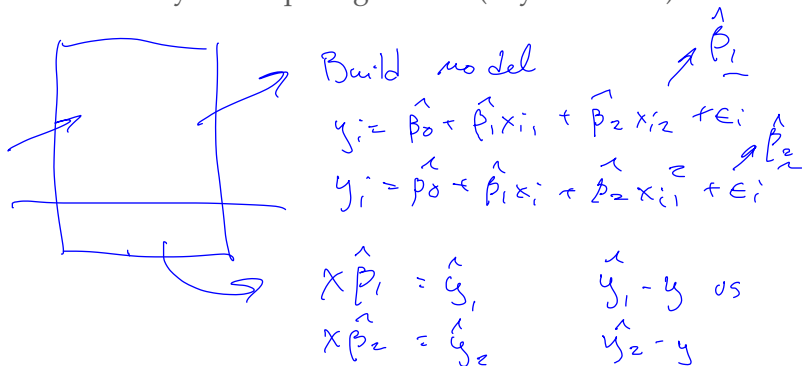 Build model
β̂₁
yᵢ = β̂₀ + β̂₁xᵢ₁ + β̂₂xᵢ₂ + ϵᵢ
β̂₂
yᵢ = β̂₀ + β̂₁xᵢ + β̂₂xᵢ₁² + ϵᵢ
Xβ̂₁ = ŷ₁ ŷ₁ - y vs
Xβ̂₂ = ŷ₂ ŷ₂ - y